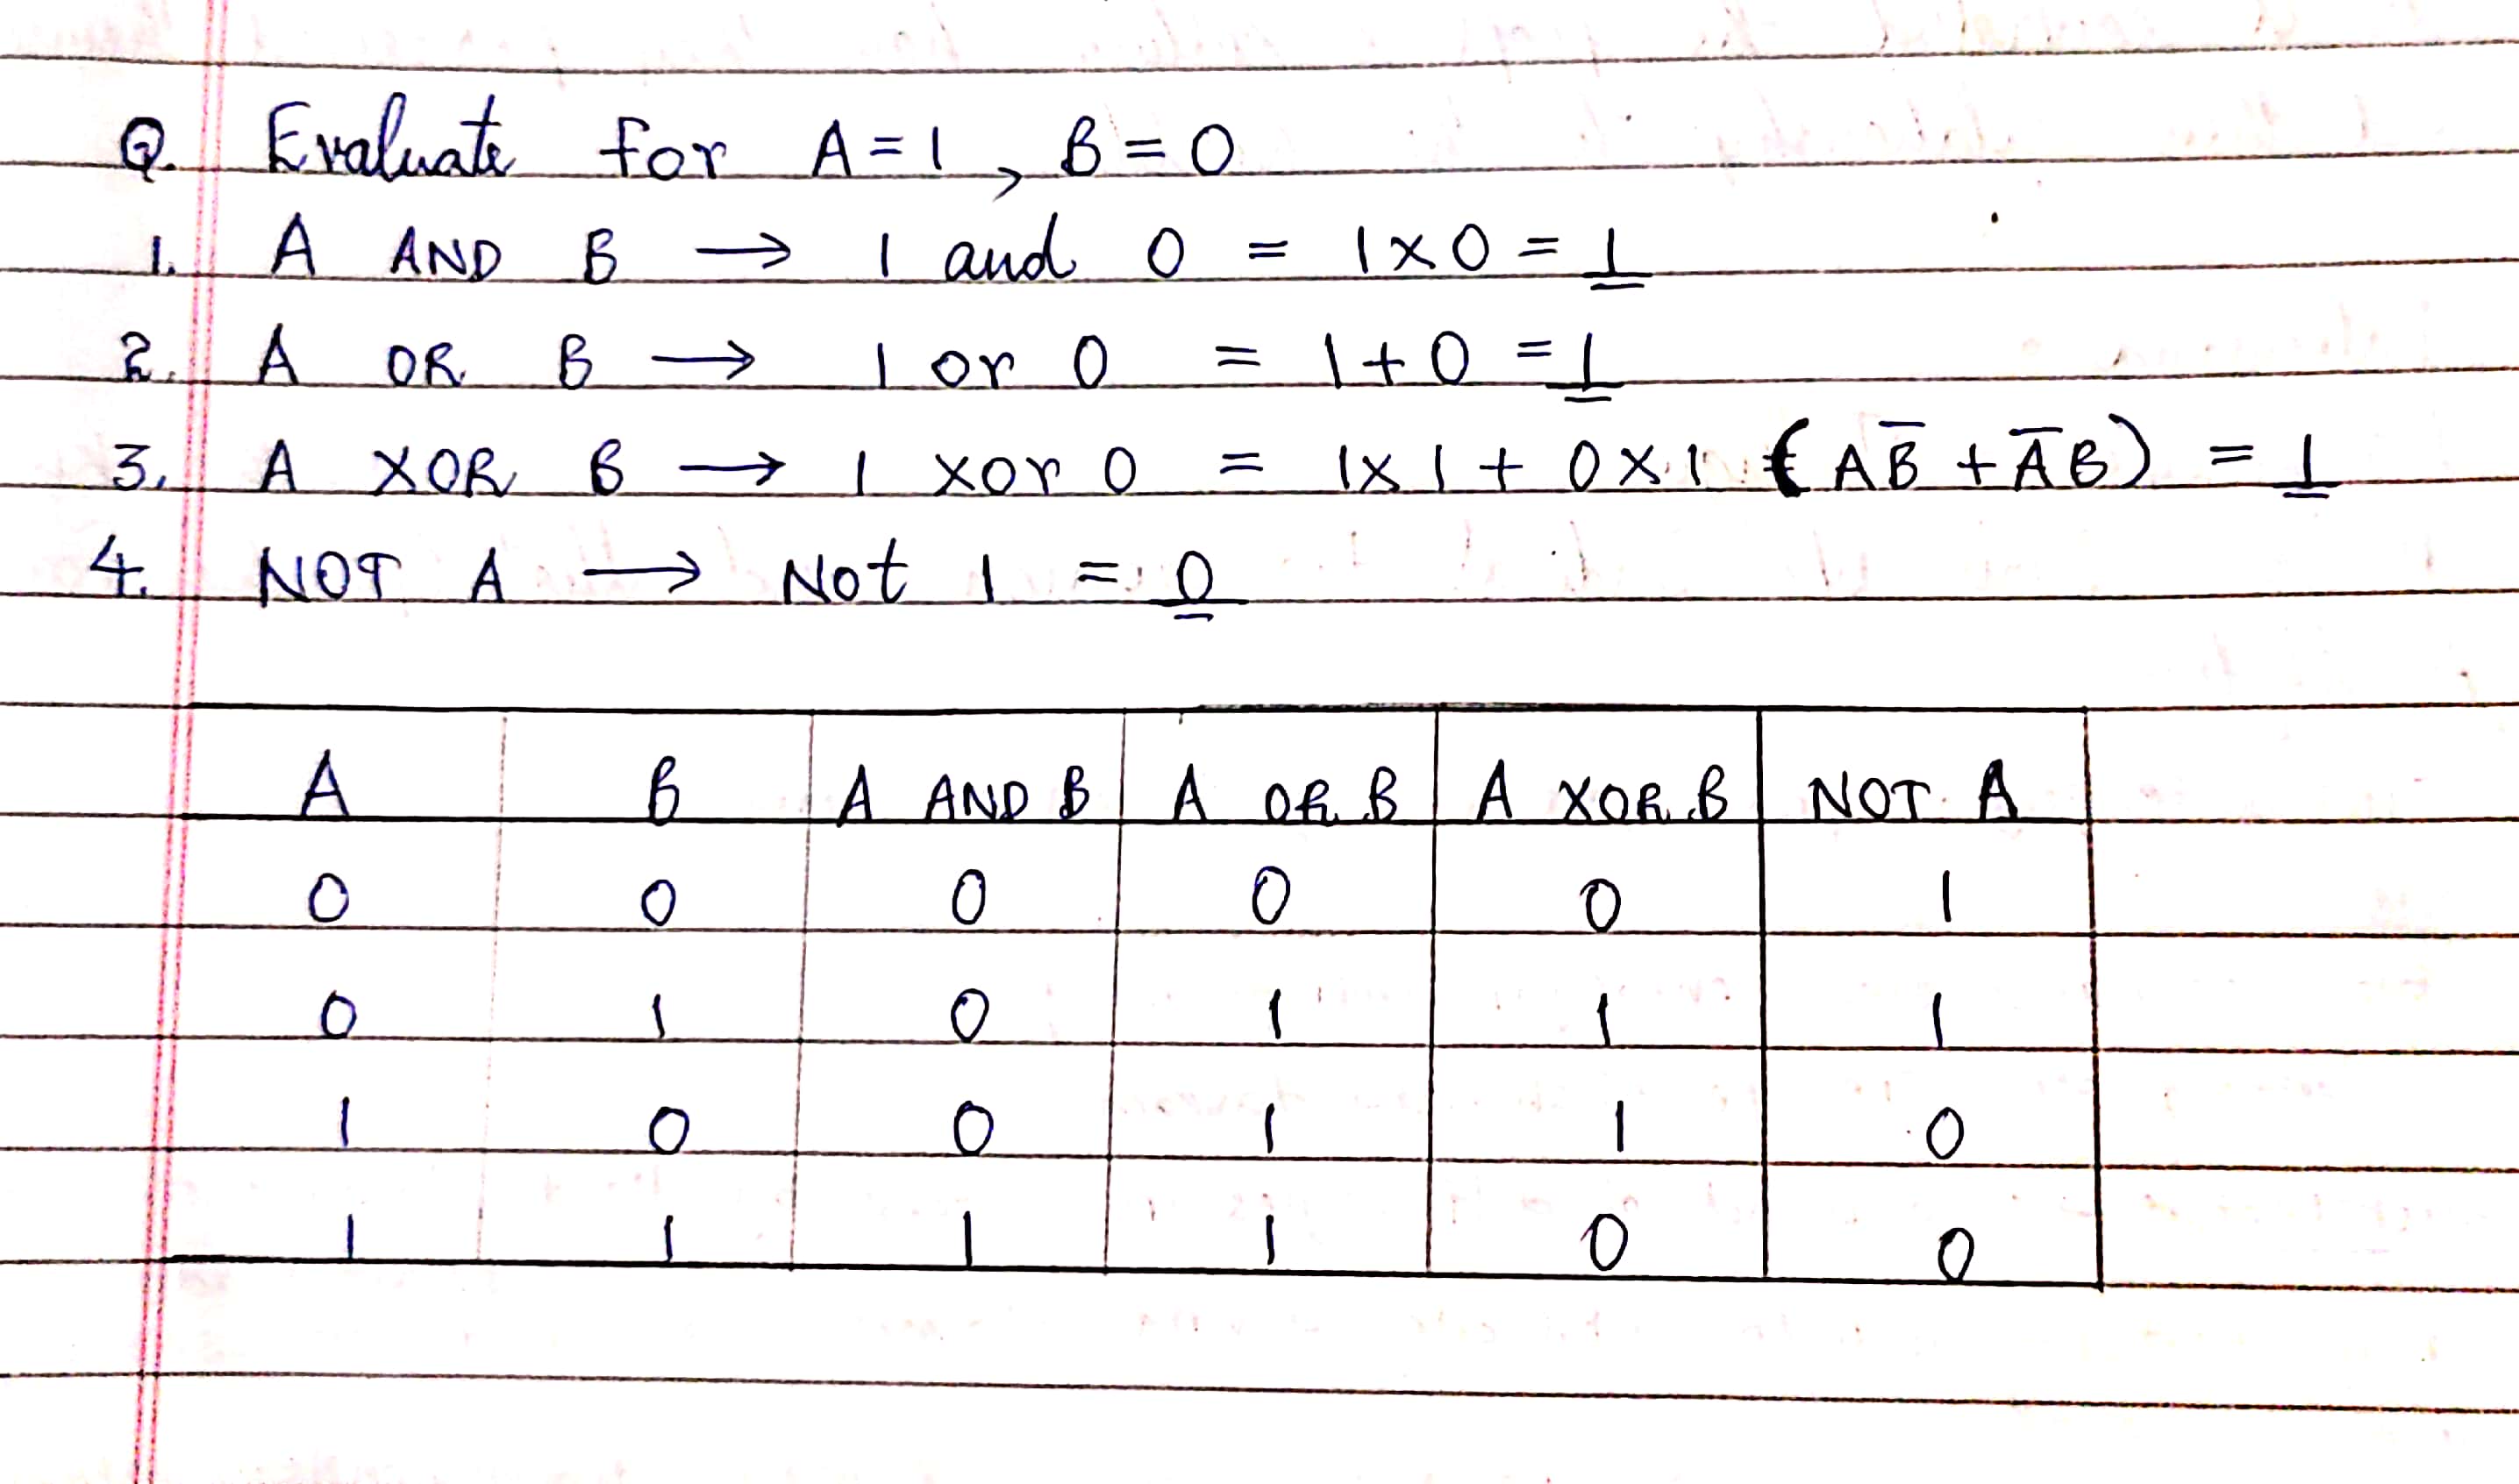 Q. Evaluate for A = 1, B = 0
1. A AND B → 1 and 0 = 1 x 0 = 1
2. A OR B → 1 or 0 = 1 + 0 = 1
3. A XOR B → 1 xor 0 = 1 x 1 + 0 x 1 (AB̅ + A̅B) = 1
4. NOT A → Not 1 = 0
A B A AND B A OR B A XOR B NOT A
0 0 0 0 0 1
0 1 0 1 1 1
1 0 0 1 1 0
1 1 1 1 0 0